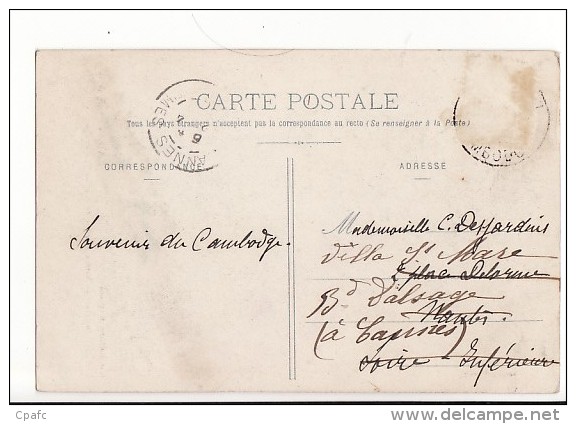 CARTE POSTALE
Tous les pays étrangers n'acceptent pas la correspondance au recto (Se renseigner à la Poste)
CORRESPONDANCE
ADRESSE
CANNES
MBODG
Souvenir du Cambodge.
Mademoiselle C. Desjardins
Villa St Marc
2 place Delorme
Bd d'Alsace
Nantes.
(à Cannes)
Loire Inférieure
Cpafc
delcampe.net